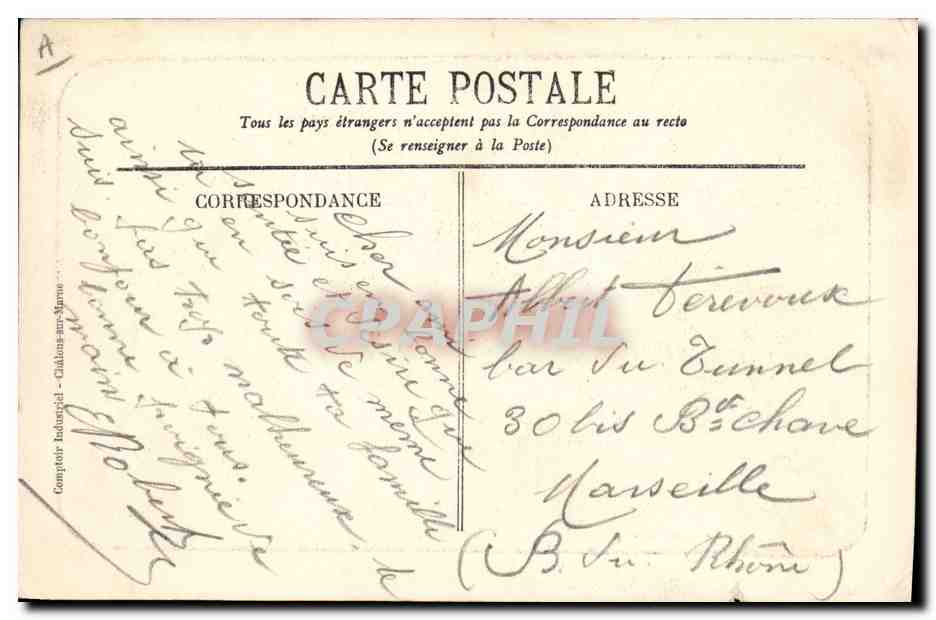 A
CARTE POSTALE
Tous les pays étrangers n'acceptent pas la Correspondance au recto
(Se renseigner à la Poste)
CORRESPONDANCE
ADRESSE
Cher
suis en bonne
santé et désire que
tu en soit de meme
ainsi que toute ta famille
suis pas trop malheureux. le
bonjour à tous
bonne poignée de
main
Robert
Monsieur
Albert Térevoux
bar du Tunnel
30 bis Bd Chave
Marseille
(B. du Rhône)
Comptoir Industriel - Châlons-sur-Marne
CPAPHIL